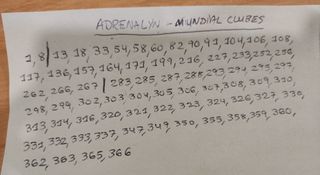 ADRENALYN - MUNDIAL CLUBES
1, 8/13, 18, 33, 54, 58, 60, 82, 90, 91, 104, 106, 108,
117, 136, 157, 164, 171, 199, 216, 227, 233, 252, 256,
262, 266, 267 / 283, 285, 287, 288, 293, 294, 295, 297,
298, 299, 302, 303, 304, 305, 306, 307, 308, 309, 310,
313, 314, 316, 320, 321, 322, 323, 324, 326, 327, 330,
331, 332, 333, 337, 347, 349, 350, 355, 358, 359, 360,
362, 363, 365, 366